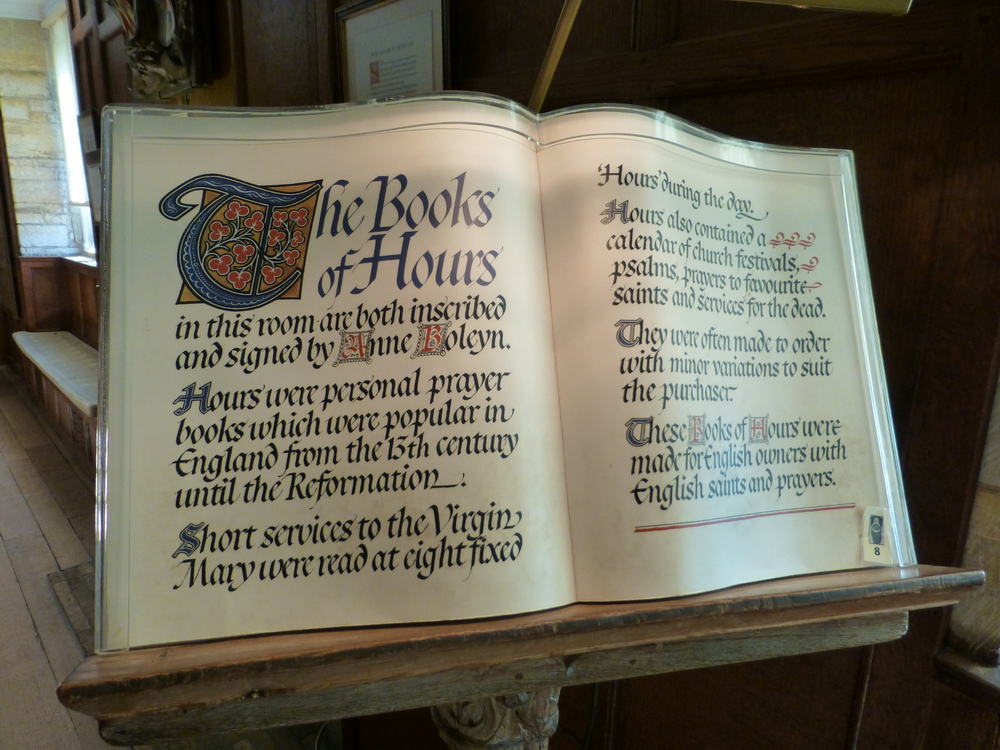 The Books
of Hours
in this room are both inscribed
and signed by Anne Boleyn.
Hours were personal prayer
books which were popular in
England from the 13th century
until the Reformation.
Short services to the Virgin
Mary were read at eight fixed
'Hours' during the day.
Hours also contained a
calendar of church festivals,
psalms, prayers to favourite
saints and services for the dead.
They were often made to order
with minor variations to suit
the purchaser.
These Books of Hours were
made for English owners with
English saints and prayers.
8